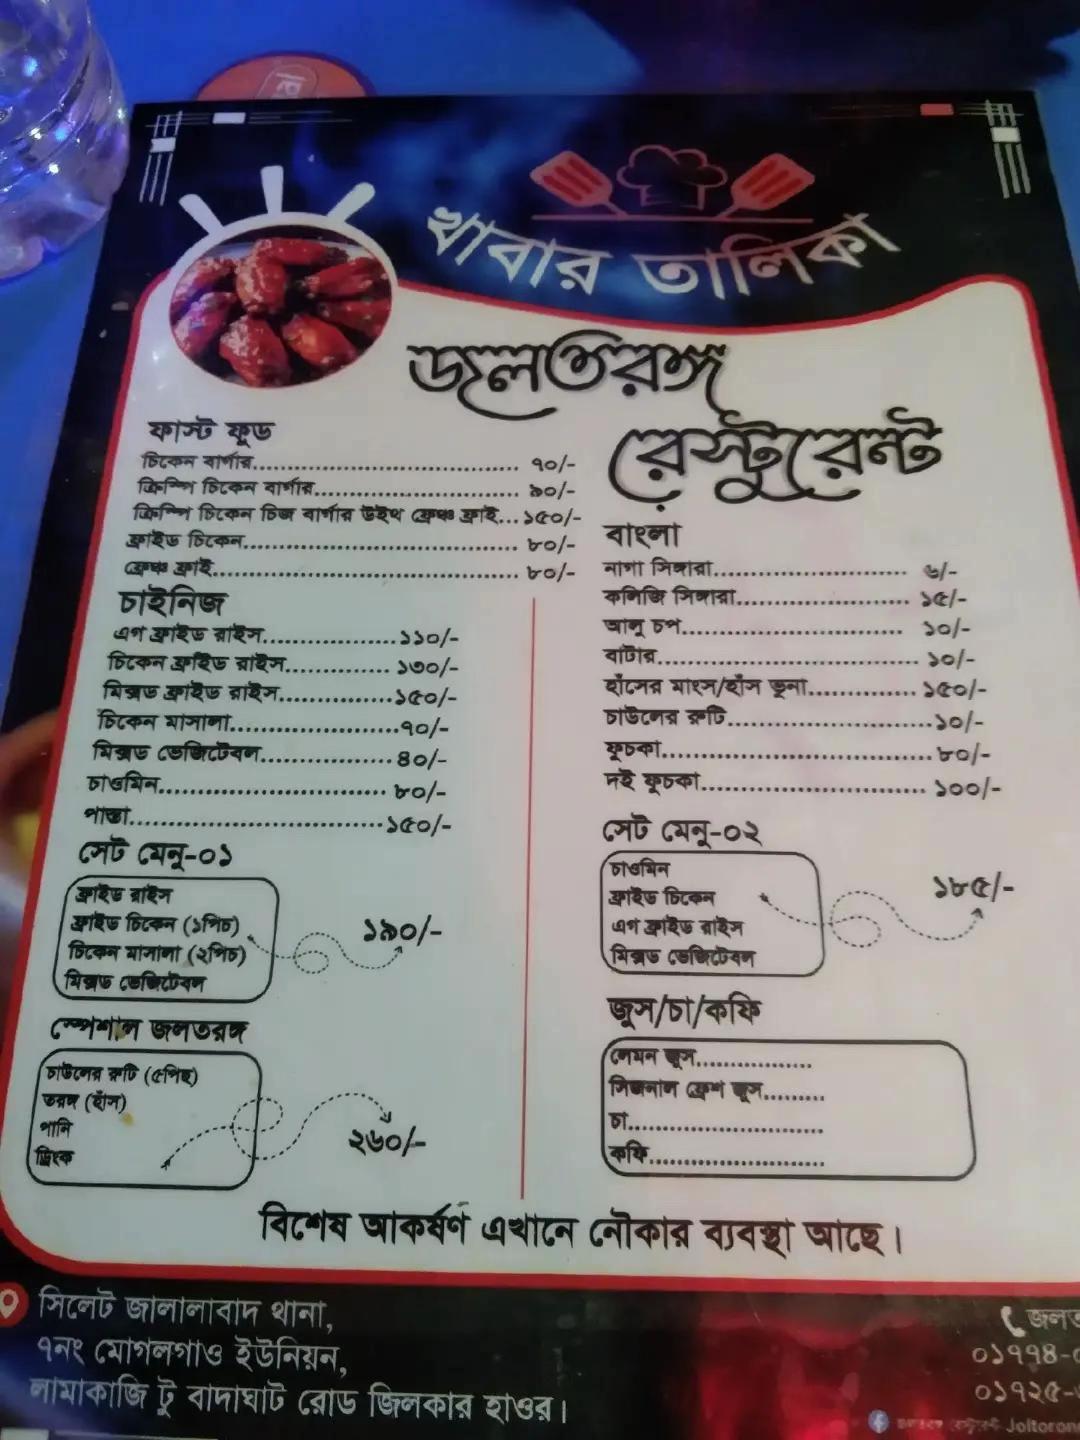 খাবার তালিকা
জলতরঙ্গ
রেস্টুরেন্ট
ফাস্ট ফুড
চিকেন বার্গার.................................... ৭০/-
ক্রিস্পি চিকেন বার্গার........................... ৯০/-
ক্রিস্পি চিকেন চিজ বার্গার উইথ ফ্রেঞ্চ ফ্রাই... ১৫০/-
ফ্রাইড চিকেন..................................... ৮০/-
ফ্রেঞ্চ ফ্রাই......................................... ৮০/-
চাইনিজ
এগ ফ্রাইড রাইস.................. ১১০/-
চিকেন ফ্রাইড রাইস.............. ১৩০/-
মিক্সড ফ্রাইড রাইস............... ১৫০/-
চিকেন মাসালা...................... ৭০/-
মিক্সড ভেজিটেবল.................. ৪০/-
চাওমিন............................... ৮০/-
পাস্তা................................... ১৫০/-
সেট মেনু-০১
ফ্রাইড রাইস
ফ্রাইড চিকেন (১পিচ)
চিকেন মাসালা (২পিচ)
মিক্সড ভেজিটেবল
১৯০/-
স্পেশাল জলতরঙ্গ
চাউলের রুটি (৫পিছ)
তরঙ্গ (হাঁস)
পানি
ড্রিংক
২৬০/-
বাংলা
নাগা সিঙ্গারা.......................... ৬/-
কলিজি সিঙ্গারা....................... ১৫/-
আলু চপ.............................. ১০/-
বাটার.................................. ১০/-
হাঁসের মাংস/হাঁস ভুনা............. ১৫০/-
চাউলের রুটি......................... ১০/-
ফুচকা.................................. ৮০/-
দই ফুচকা............................. ১০০/-
সেট মেনু-০২
চাওমিন
ফ্রাইড চিকেন
এগ ফ্রাইড রাইস
মিক্সড ভেজিটেবল
১৮৫/-
জুস/চা/কফি
লেমন জুস...............
সিজনাল ফ্রেশ জুস.........
চা.........................
কফি.......................
বিশেষ আকর্ষণ এখানে নৌকার ব্যবস্থা আছে।
সিলেট জালালাবাদ থানা,
৭নং মোগলগাও ইউনিয়ন,
লামাকাজি টু বাদাঘাট রোড জিলকার হাওর।
জলত
০১৭৭৪-
০১৭২৫-
Joltoron